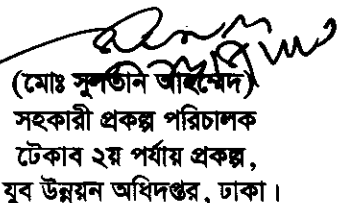 (মোঃ সুলতান আহম্মেদ)
সহকারী প্রকল্প পরিচালক
টেকাব ২য় পর্যায় প্রকল্প,
যুব উন্নয়ন অধিদপ্তর, ঢাকা।